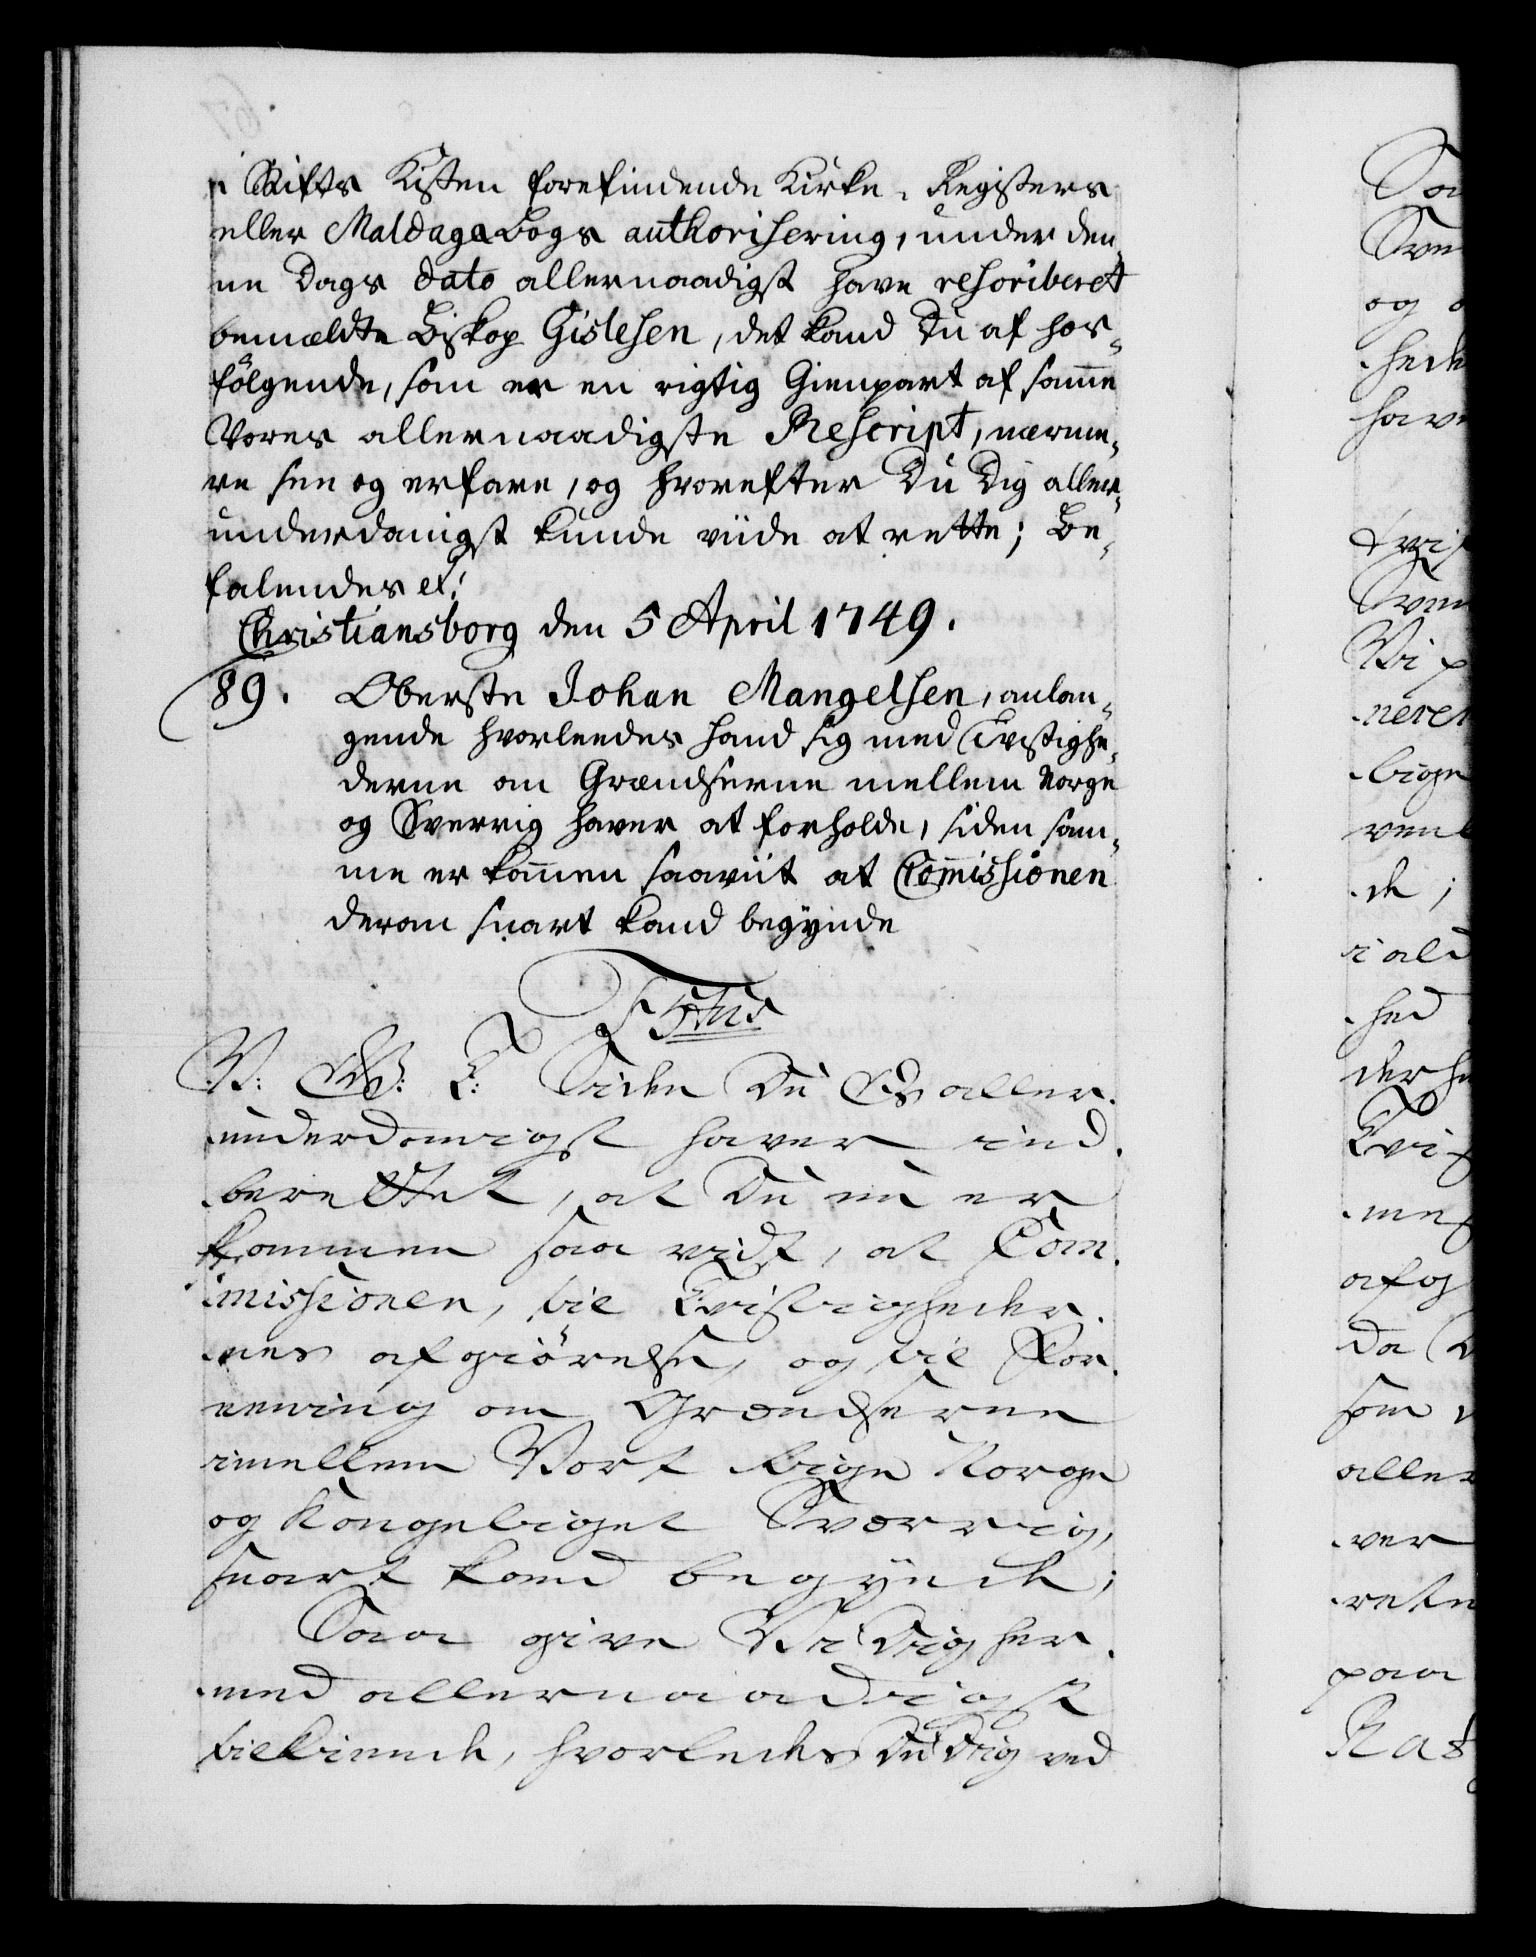 i Stifts Kisten forefindende Kirke-Registers
eller Maldaga Bogs authorisering, under den-
ne Dags dato allernaadigst have rescriberet
bemældte Biskop Gislesen, det kand Du af hos-
fölgende, som er en rigtig Gienpart af samme
Vores allernaadigste Rescript, nærme-
re see og erfare, og hvorefter Du Dig aller-
underdanigst kunde viide at rette; Be-
falendes etc:
Christiansborg den 5 April 1749.
89. Oberste Johan Mangelsen, anlan-
gende hvorleedes hand sig med Tvistighe-
derne om Grændserne mellem Norge
og Sverrig haver at forholde, siden sam-
me er kommen saaviit at Commissionen
derom snart kand begÿnde
Titus
V: G: T: Siden Du Os aller-
underdanigst haver ind-
berettet, at Du nu er
kommen saa vidt, at Com-
missionen, til Tvistigheder-
nes afgiörelse, og til For-
eening om Grændserne
imellem Vort Rige Norge
og Kongeriget Sverrig,
snart kand begÿnde;
Saa give Vi Dig her-
med allernaadigst
tilkiende, hvorledes Du Dig ved